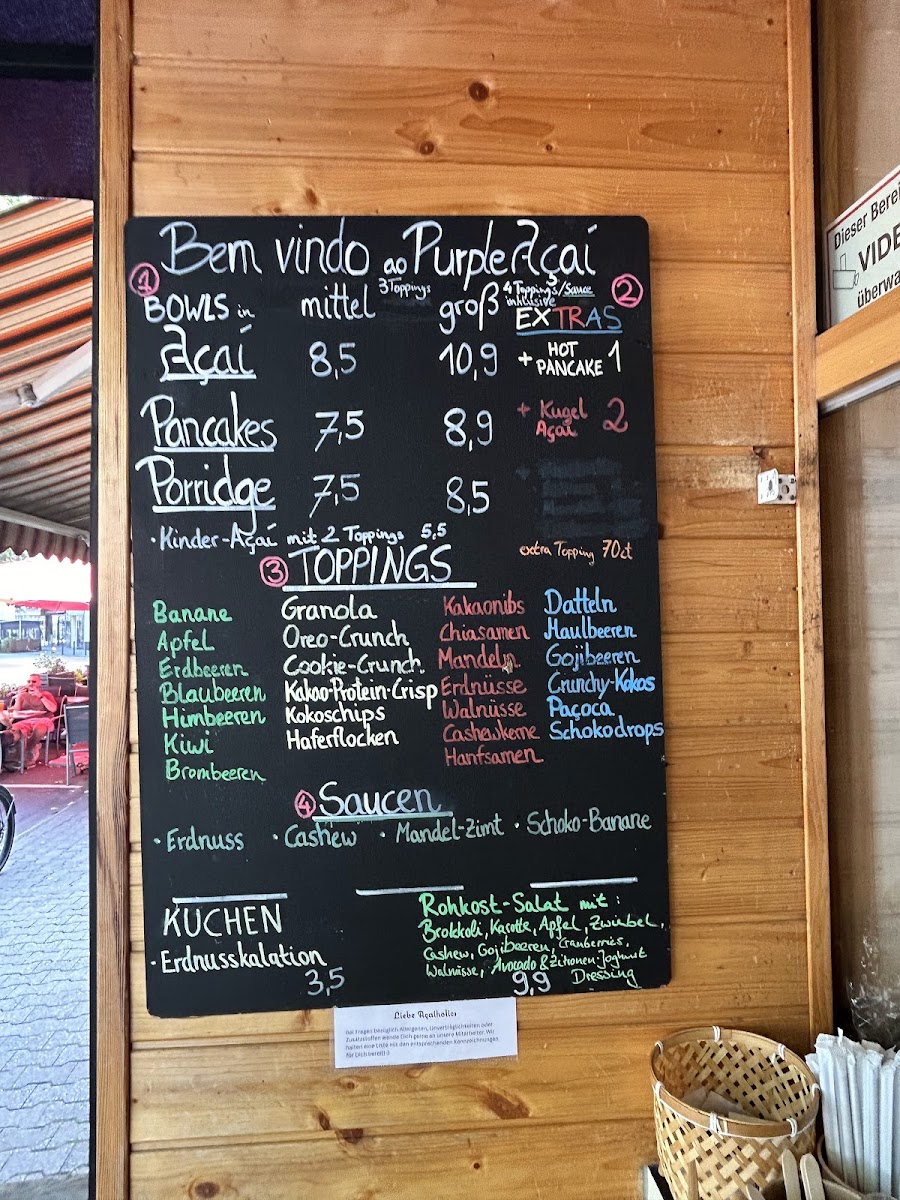 Bem vindo ao Purple Açaí
1
BOWLS in
mittel
3 Toppings
groß
4 Toppings/Sauce
inklusive
2
EXTRAS
Açaí 8,5 10,9
+ HOT PANCAKE 1
Pancakes 7,5 8,9
+ Kugel Açaí 2
Porridge 7,5 8,5
· Kinder-Açaí mit 2 Toppings 5,5
extra Topping 70ct
3 TOPPINGS
Banane
Apfel
Erdbeeren
Blaubeeren
Himbeeren
Kiwi
Brombeeren
Granola
Oreo-Crunch
Cookie-Crunch
Kakao-Protein-Crisp
Kokoschips
Haferflocken
Kakaonibs
Chiasamen
Mandeln
Erdnüsse
Walnüsse
Cashewkerne
Hanfsamen
Datteln
Maulbeeren
Gojibeeren
Crunchy-Kokos
Paçoca
Schokodrops
4 Saucen
· Erdnuss · Cashew · Mandel-Zimt · Schoko-Banane
KUCHEN
· Erdnusskalation
3,5
Rohkost-Salat mit:
Brokkoli, Karotte, Apfel, Zwiebel,
Cashew, Gojibeeren, Cranberries,
Walnüsse, Avocado & Zitronen-Joghurt
9,9 Dressing
Liebe Açaíholics
Bei Fragen bezüglich Allergenen, Unverträglichkeiten oder
Zusatzstoffen wende Dich gerne an unsere Mitarbeiter. Wir
halten eine Liste mit den entsprechenden Kennzeichnungen
für Dich bereit! :)
Dieser Berei
VIDE
überwa